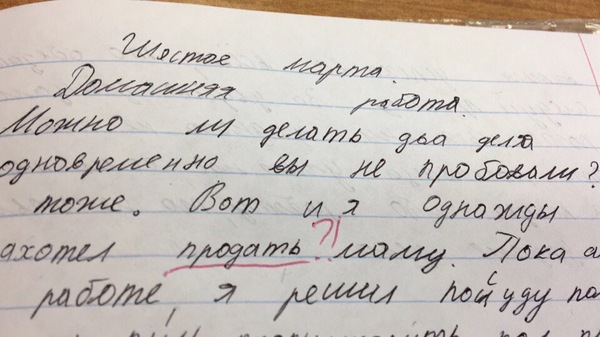 Шестое марта.
Домашняя работа.
Можно ли делать два дела
одновременно вы не пробовали?
тоже. Вот и я однажды
ахотел продать ?! маму. Пока
работе, я решил посуду